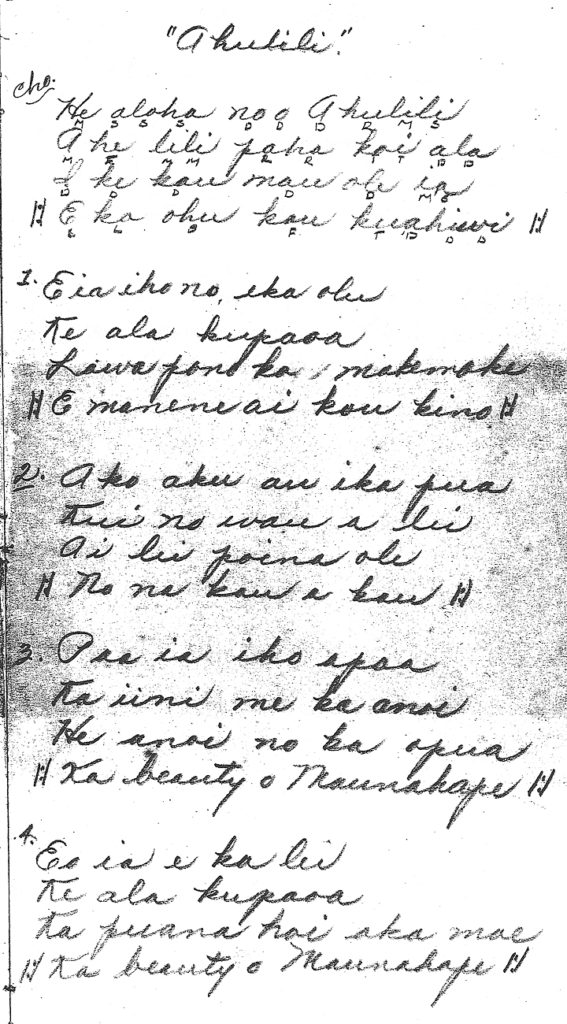 "Ahulili."
cho.
He aloha no o Ahulili
A he lili paha koi ala
I ke kau mau ole ia
E ka ohu kau kuahiwi
1. Eia iho no, eka olu
Ke ala kupaoa
Lawa pono ka, makemake
E manene ai kou kino
2. Ako aku au ika pua
Kui no wau a lei
Ai lei poina ole
No na kau a kau
3. Paa ia iho apaa
Ka iini me ka anoi
He anoi no ka opua
Ka beauty o Maunahape
4. Eo ia e ka lei
Ke ala kupaoa
Ka puana hoi aka moe
Ka beauty o Maunahape